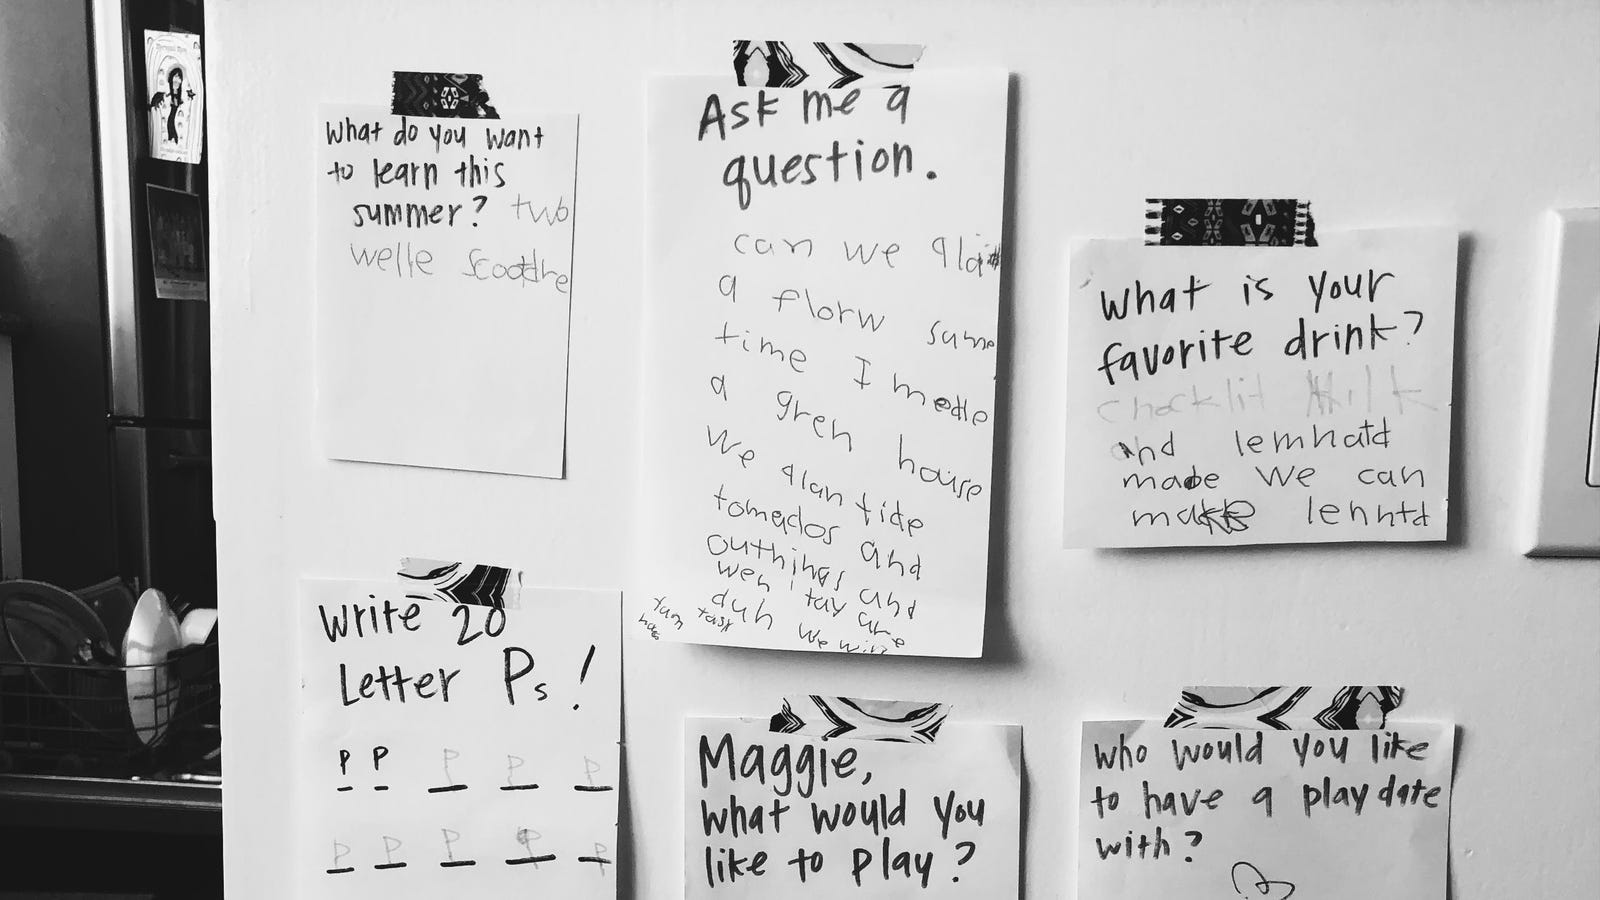 What do you want
to learn this
summer? two
welle scootdre
Ask me a
question.
can we
a florw sume
time I made
a greh house
we qlan tide
tomados and
outhings and
weh I tay and
duh are
tast we wire
What is your
favorite drink?
chocklit Milk
and lemhatd
made we can
make lenhtd
Write 20
Letter Ps!
P P P P P
P P P P P
Maggie,
what would you
like to play?
who would you like
to have a play date
with?